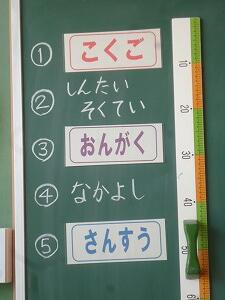 ① こくご
② しんたい
そくてい
③ おんがく
④ なかよし
⑤ さんすう
10
20
30
40
50
60